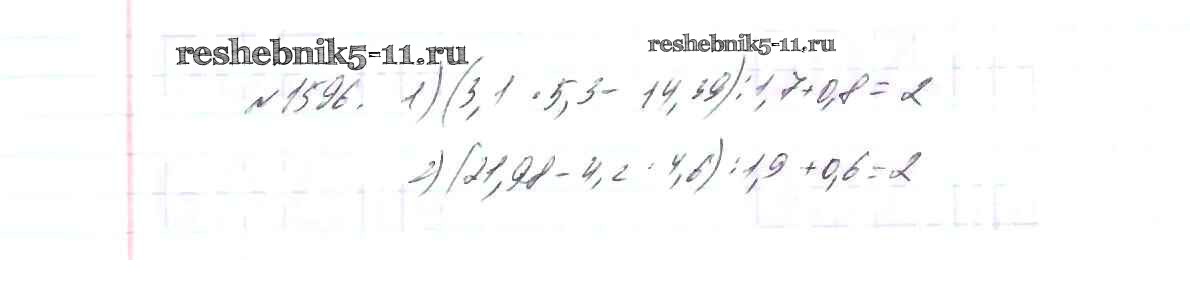 reshebnik5-11.ru
reshebnik5-11.ru
№1596. 1) (3,1 · 5,3 - 14,39) : 1,7 + 0,8 = 2
2) (21,98 - 4,2 · 4,6) : 1,9 + 0,6 = 2